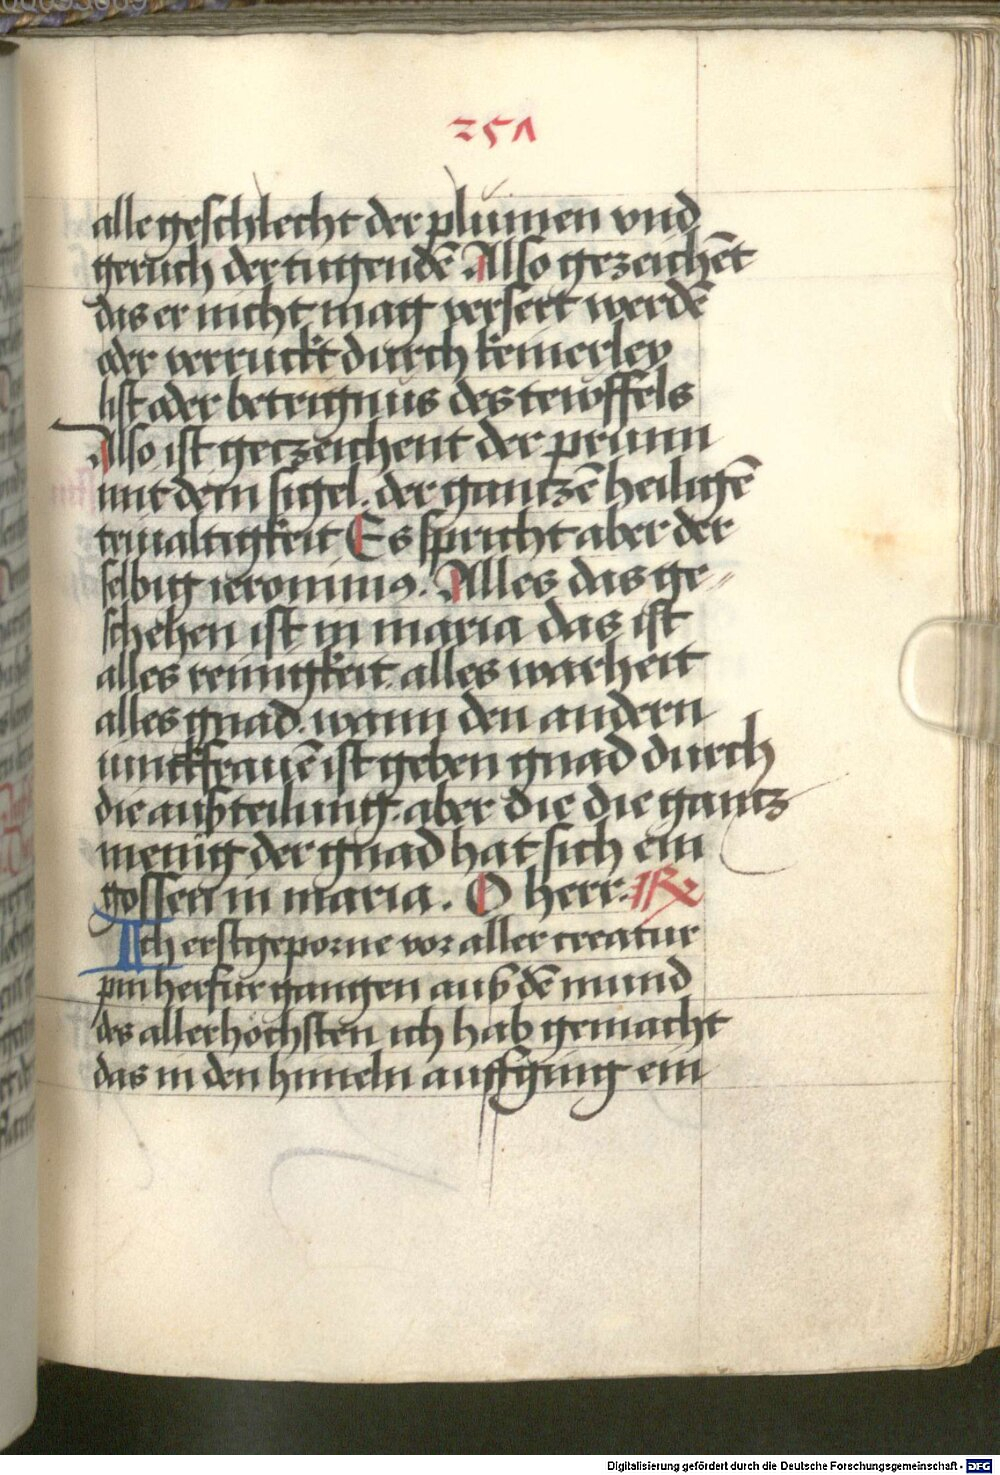 251
alle geschlecht der plůmen vnd
geruch der tugendē Also gezeichēt
das er nicht mag versert werdē
oder verruckt durch keinerley
list oder betrignus des tewffels
Also ist geczeichent der prunn
mit dem sigel. der gantzē heiligē
triualtigkeit Es spricht aber der
selbig ieronimus. Alles das ge⸗
schehen ist in maria das ist
alles reinigkeit. alles warheit
alles gnad. wann den andern
iunckfrauē ist geben gnad durch
die außteilung. aber die die gantz
menig der gnad hat sich ein
gossen in maria. O herr. R̷
Ich erstgeporne vor aller creatur
pin herfur gangen auß dē mund
des allerhöchsten ich hab gemacht
das in den himeln auffging ein
Digitalisierung gefördert durch die Deutsche Forschungsgemeinschaft - DFG